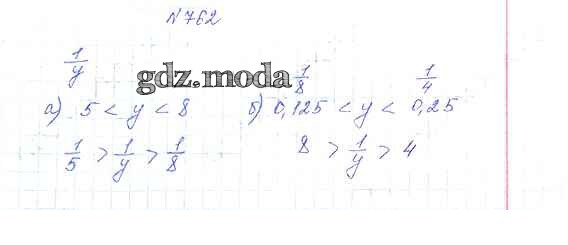 №762
1/y
gdz.moda
1/8 1/4
а) 5 < y < 8 б) 0,125 < y < 0,25
1/5 > 1/y > 1/8 8 > 1/y > 4